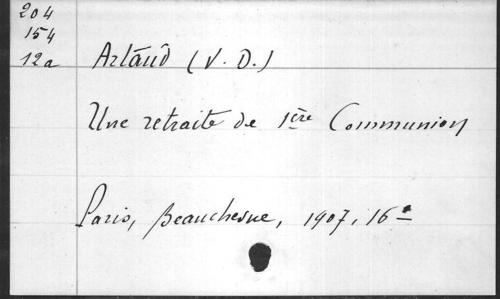 204
154
12a Artaud (V. D.)
Une retraite de 1ère Communion
Paris, Beauchesne, 1907, 16º